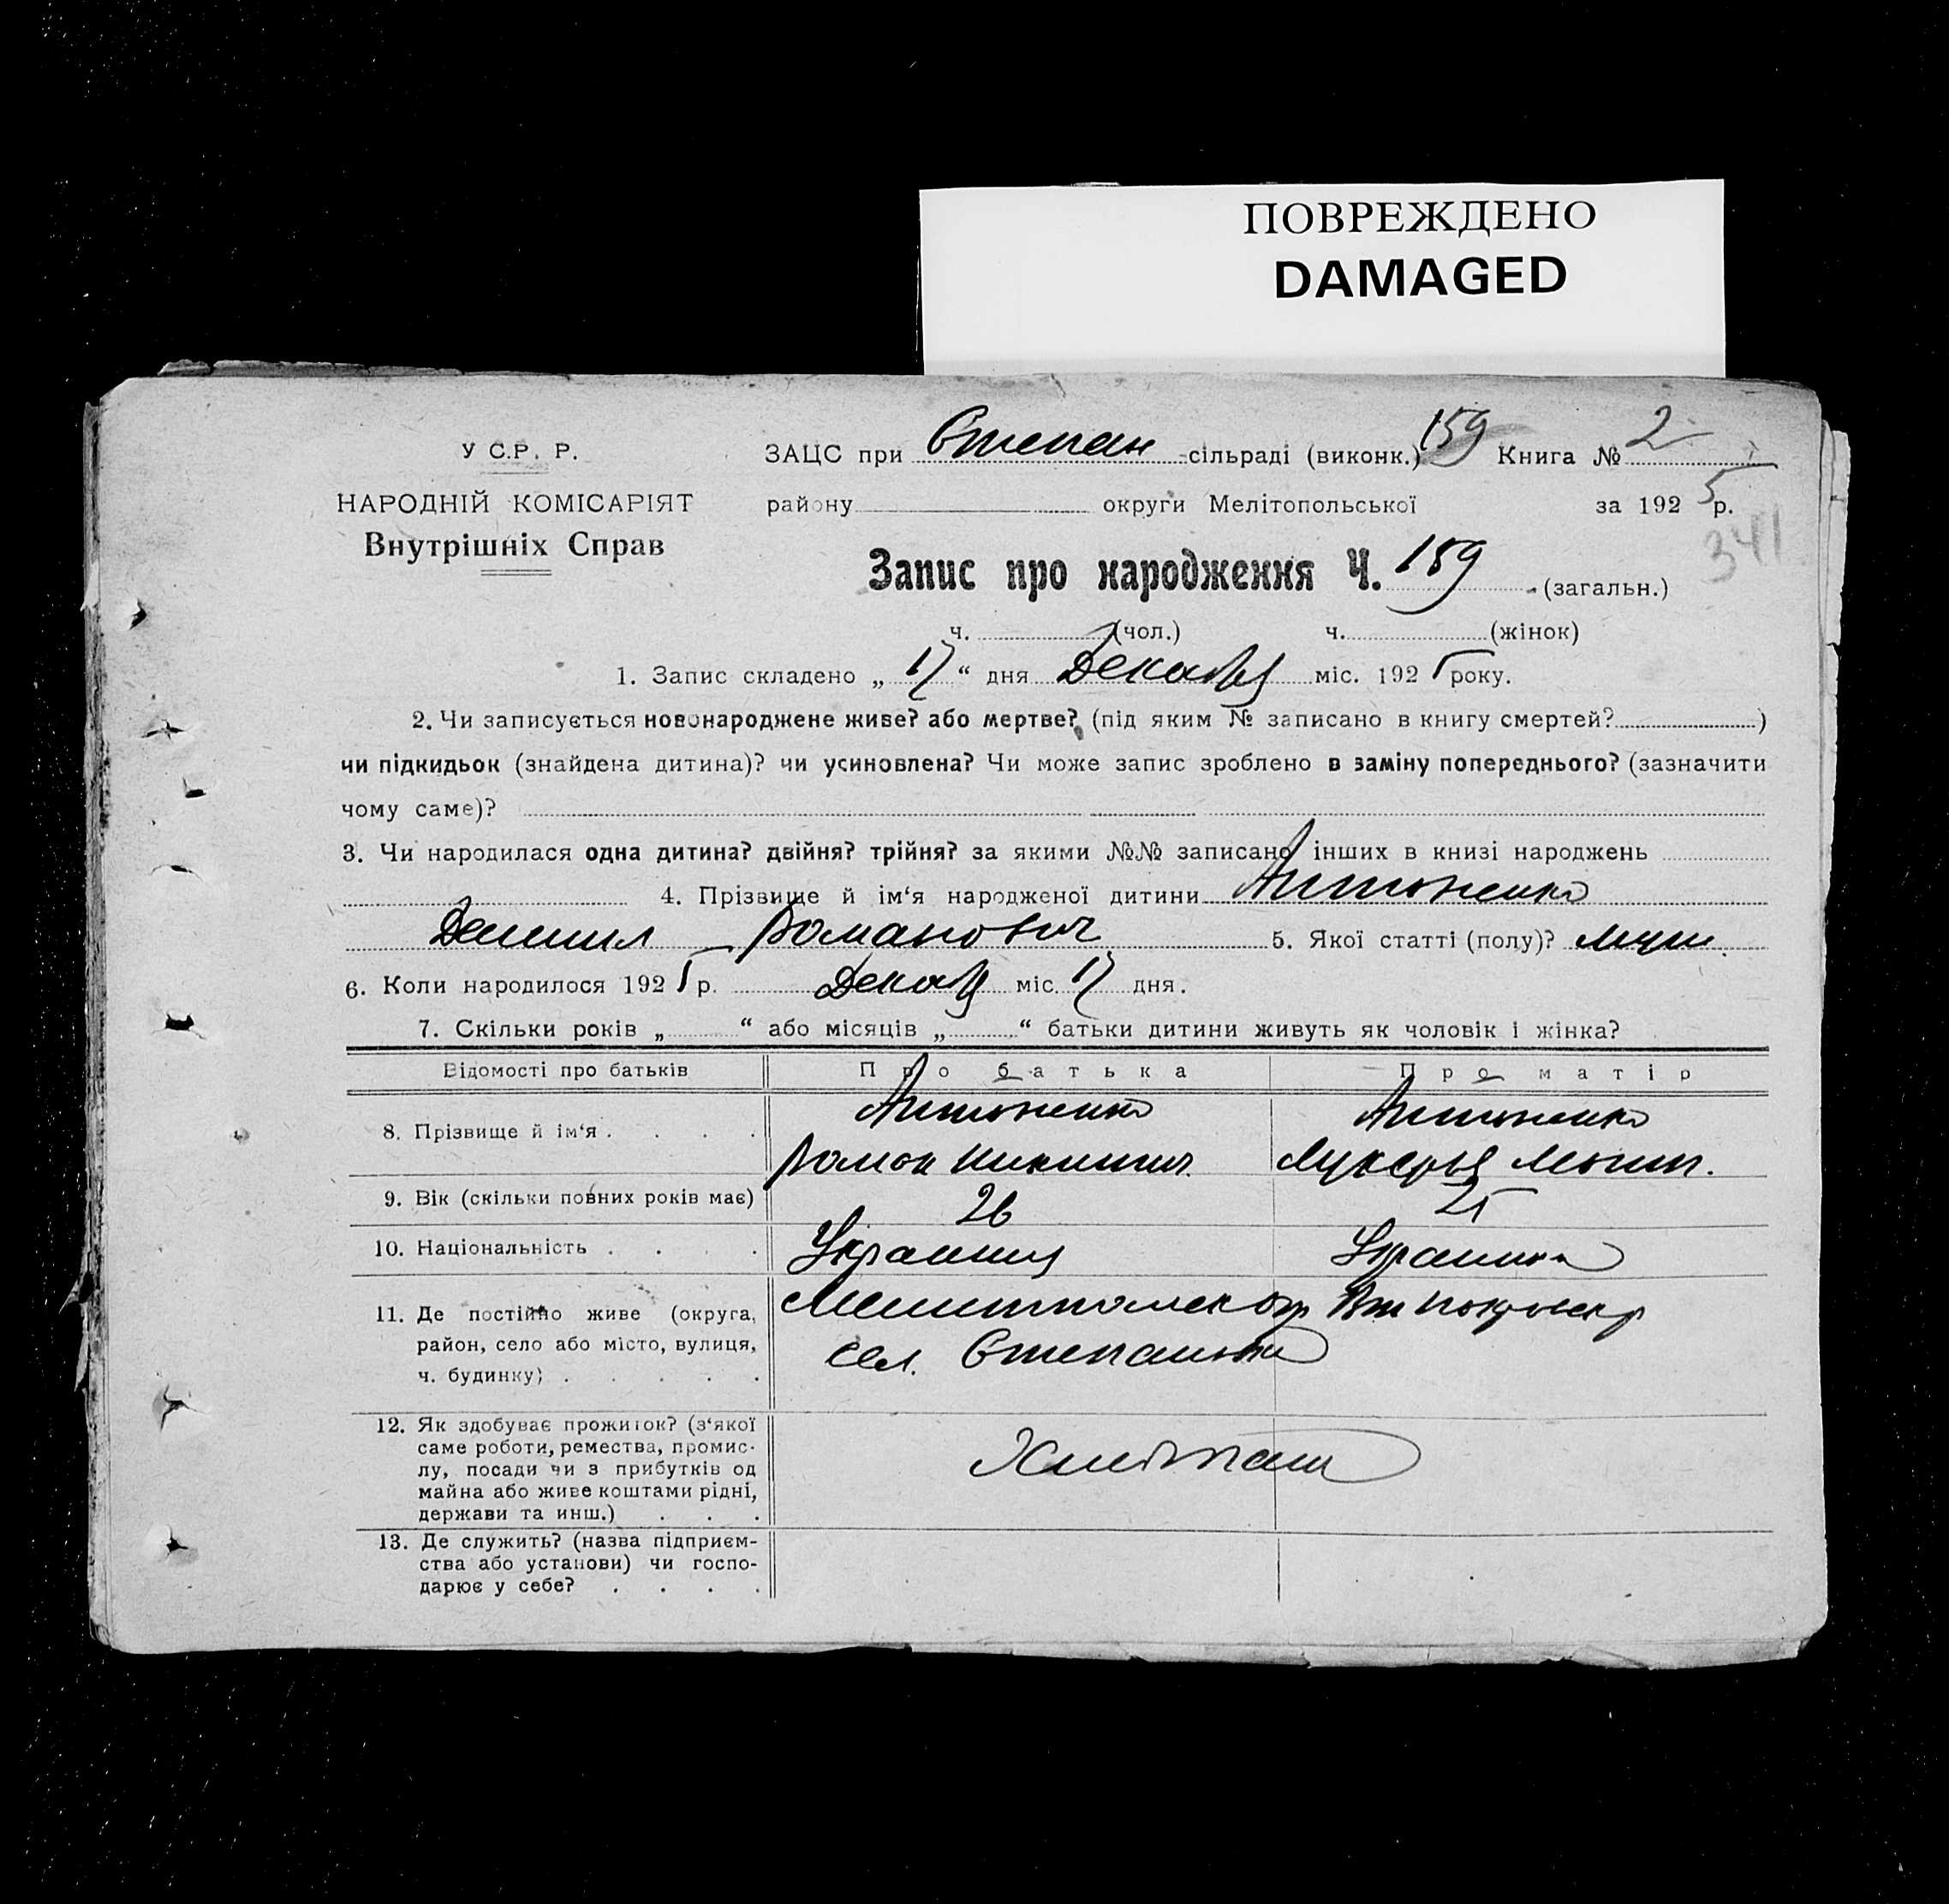 ПОВРЕЖДЕНО
DAMAGED
У С.Р. Р.
НАРОДНІЙ КОМІСАРІЯТ
Внутрішніх Справ
ЗАЦС при Степан сільраді (виконк.) 159 Книга № 2
району округи Мелітопольської за 1925 р.
341
Запис про народження Ч. 159 (загальн.)
ч. (чол.) ч. (жінок)
1. Запис складено „ 17 “ дня Декабря міс. 1925 року.
2. Чи записується новонароджене живе? або мертве? (під яким № записано в книгу смертей? )
чи підкидьок (знайдена дитина)? чи усиновлена? Чи може запис зроблено в заміну попереднього? (зазначити
чому саме)?
3. Чи народилася одна дитина? двійня? трійня? за якими №№ записано інших в книзі народжень
4. Прізвище й ім‘я народженої дитини Антоненко
Романович 5. Якої статті (полу)? муш.
6. Коли народилося 1925 р. Декаб міс. 17 дня.
7. Скільки років „ “ або місяців „ “ батьки дитини живуть як чоловік і жінка?
Відомості про батьків Про батька Про матір
8. Прізвище й ім‘я . . . . Антоненко Антоненко
Роман Никитич Лукерья
9. Вік (скільки повних років має) 26 25
10. Національність . . . . Украинец Украинка
11. Де постійно живе (округа, район, село або місто, вулиця, ч. будинку) . . . . .
сел. Степановка
12. Як здобуває прожиток? (з‘якої саме роботи, ремества, промислу, посади чи з прибутків од майна або живе коштами рідні, держави та инш.) . . . Хлебопаш
13. Де служить? (назва підприємства або установи) чи господарює у себе? . . . .